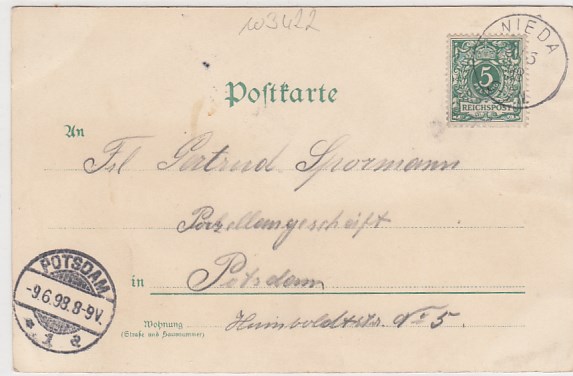 103422
NIEDA
5
REICHSPOST
Postkarte
An
Frl Gertrud Spormann
Porzellangeschäft
in Potsdam
Wohnung
(Straße und Hausnummer)
Humboldtstr. No 5.
POTSDAM
-9.6.98.8-9V.
* 1 e